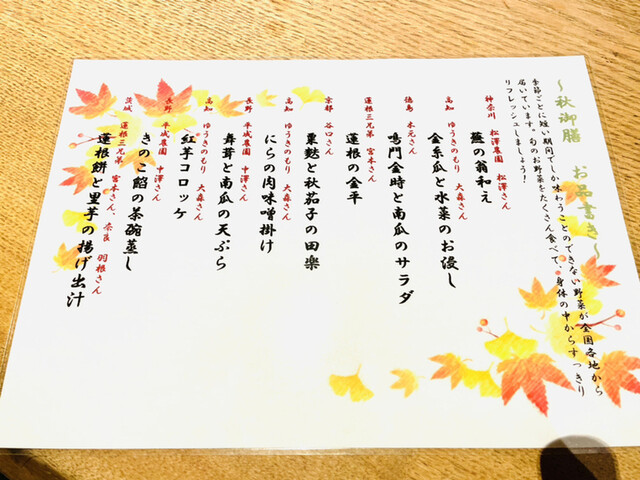 ～秋御膳　お品書き～
季節ごとに短い期間でしか味わうことのできない野菜が全国各地から
届いています。旬のお野菜をたくさん食べて、身体の中からすっきり
リフレッシュしましょう！
神奈川　松澤農園　松澤さん
蕪の翁和え
高知　ゆうきのもり　大森さん
金糸瓜と水菜のお浸し
徳島　木元さん
鳴門金時と南瓜のサラダ
蓮根三兄弟　宮本さん
蓮根の金平
京都　谷口さん
粟麩と秋茄子の田楽
高知　ゆうきのもり　大森さん
にらの肉味噌掛け
長野　平城農園　中澤さん
舞茸と南瓜の天ぷら
高知　ゆうきのもり　大森さん
紅芋コロッケ
長野　平城農園　中澤さん
きのこ餡の茶碗蒸し
茨城　蓮根三兄弟　宮本さん、奈良　羽根さん
蓮根餅と里芋の揚げ出汁